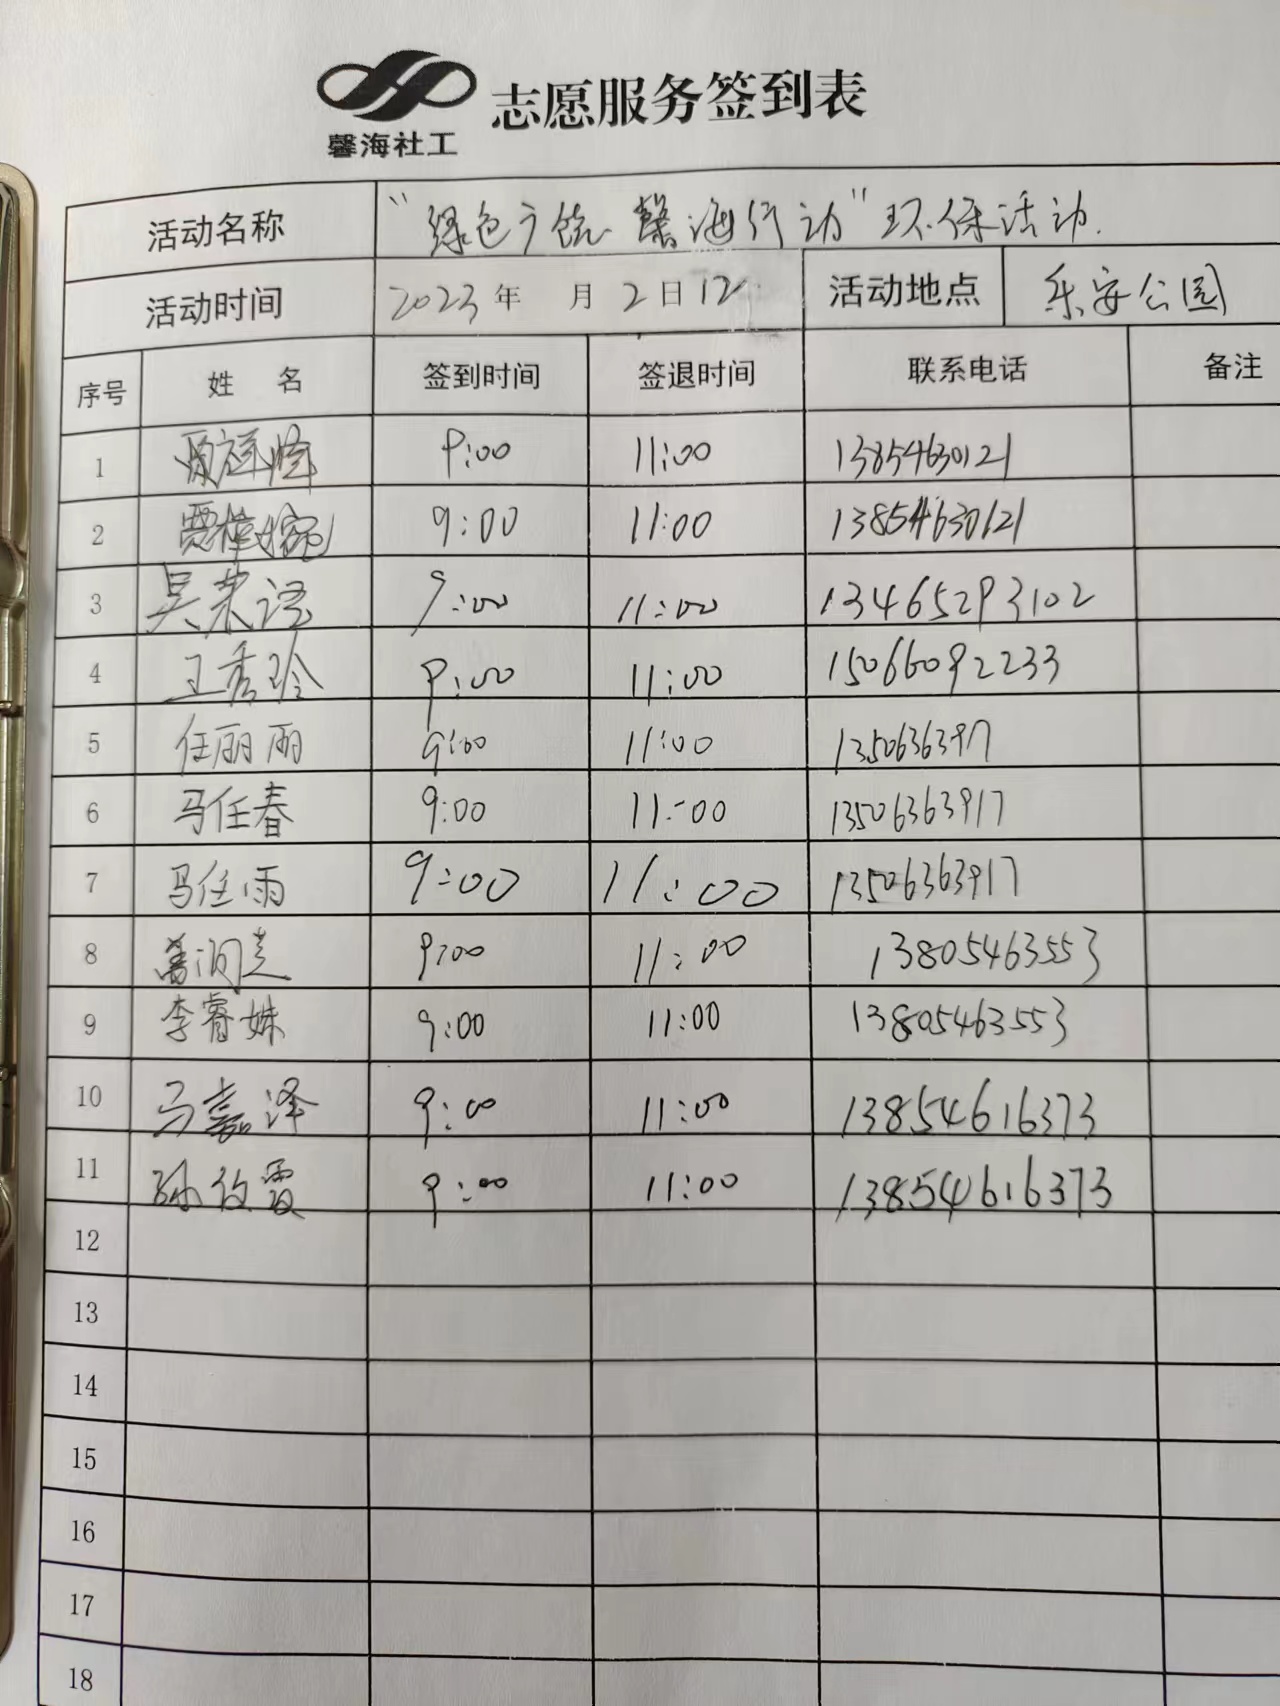 馨海社工
志愿服务签到表
活动名称 “绿色广饶 馨海行动”环保活动.
活动时间 2023年 月2日12 活动地点 乐安公园
序号 姓 名 签到时间 签退时间 联系电话 备注
1 9:00 11:00 13854630121
2 9:00 11:00 13854630121
3 吴荣语 9:00 11:00 13465293102
4 王秀玲 9:00 11:00 15066092233
5 任丽雨 9:00 11:00 1350636397
6 马任春 9:00 11:00 13506363917
7 马任雨 9:00 11:00 13506363917
8 9:00 11:00 13805463553
9 李睿姝 9:00 11:00 13805463553
10 马嘉泽 9:00 11:00 13854616373
11 9:00 11:00 13854616373
12
13
14
15
16
17
18